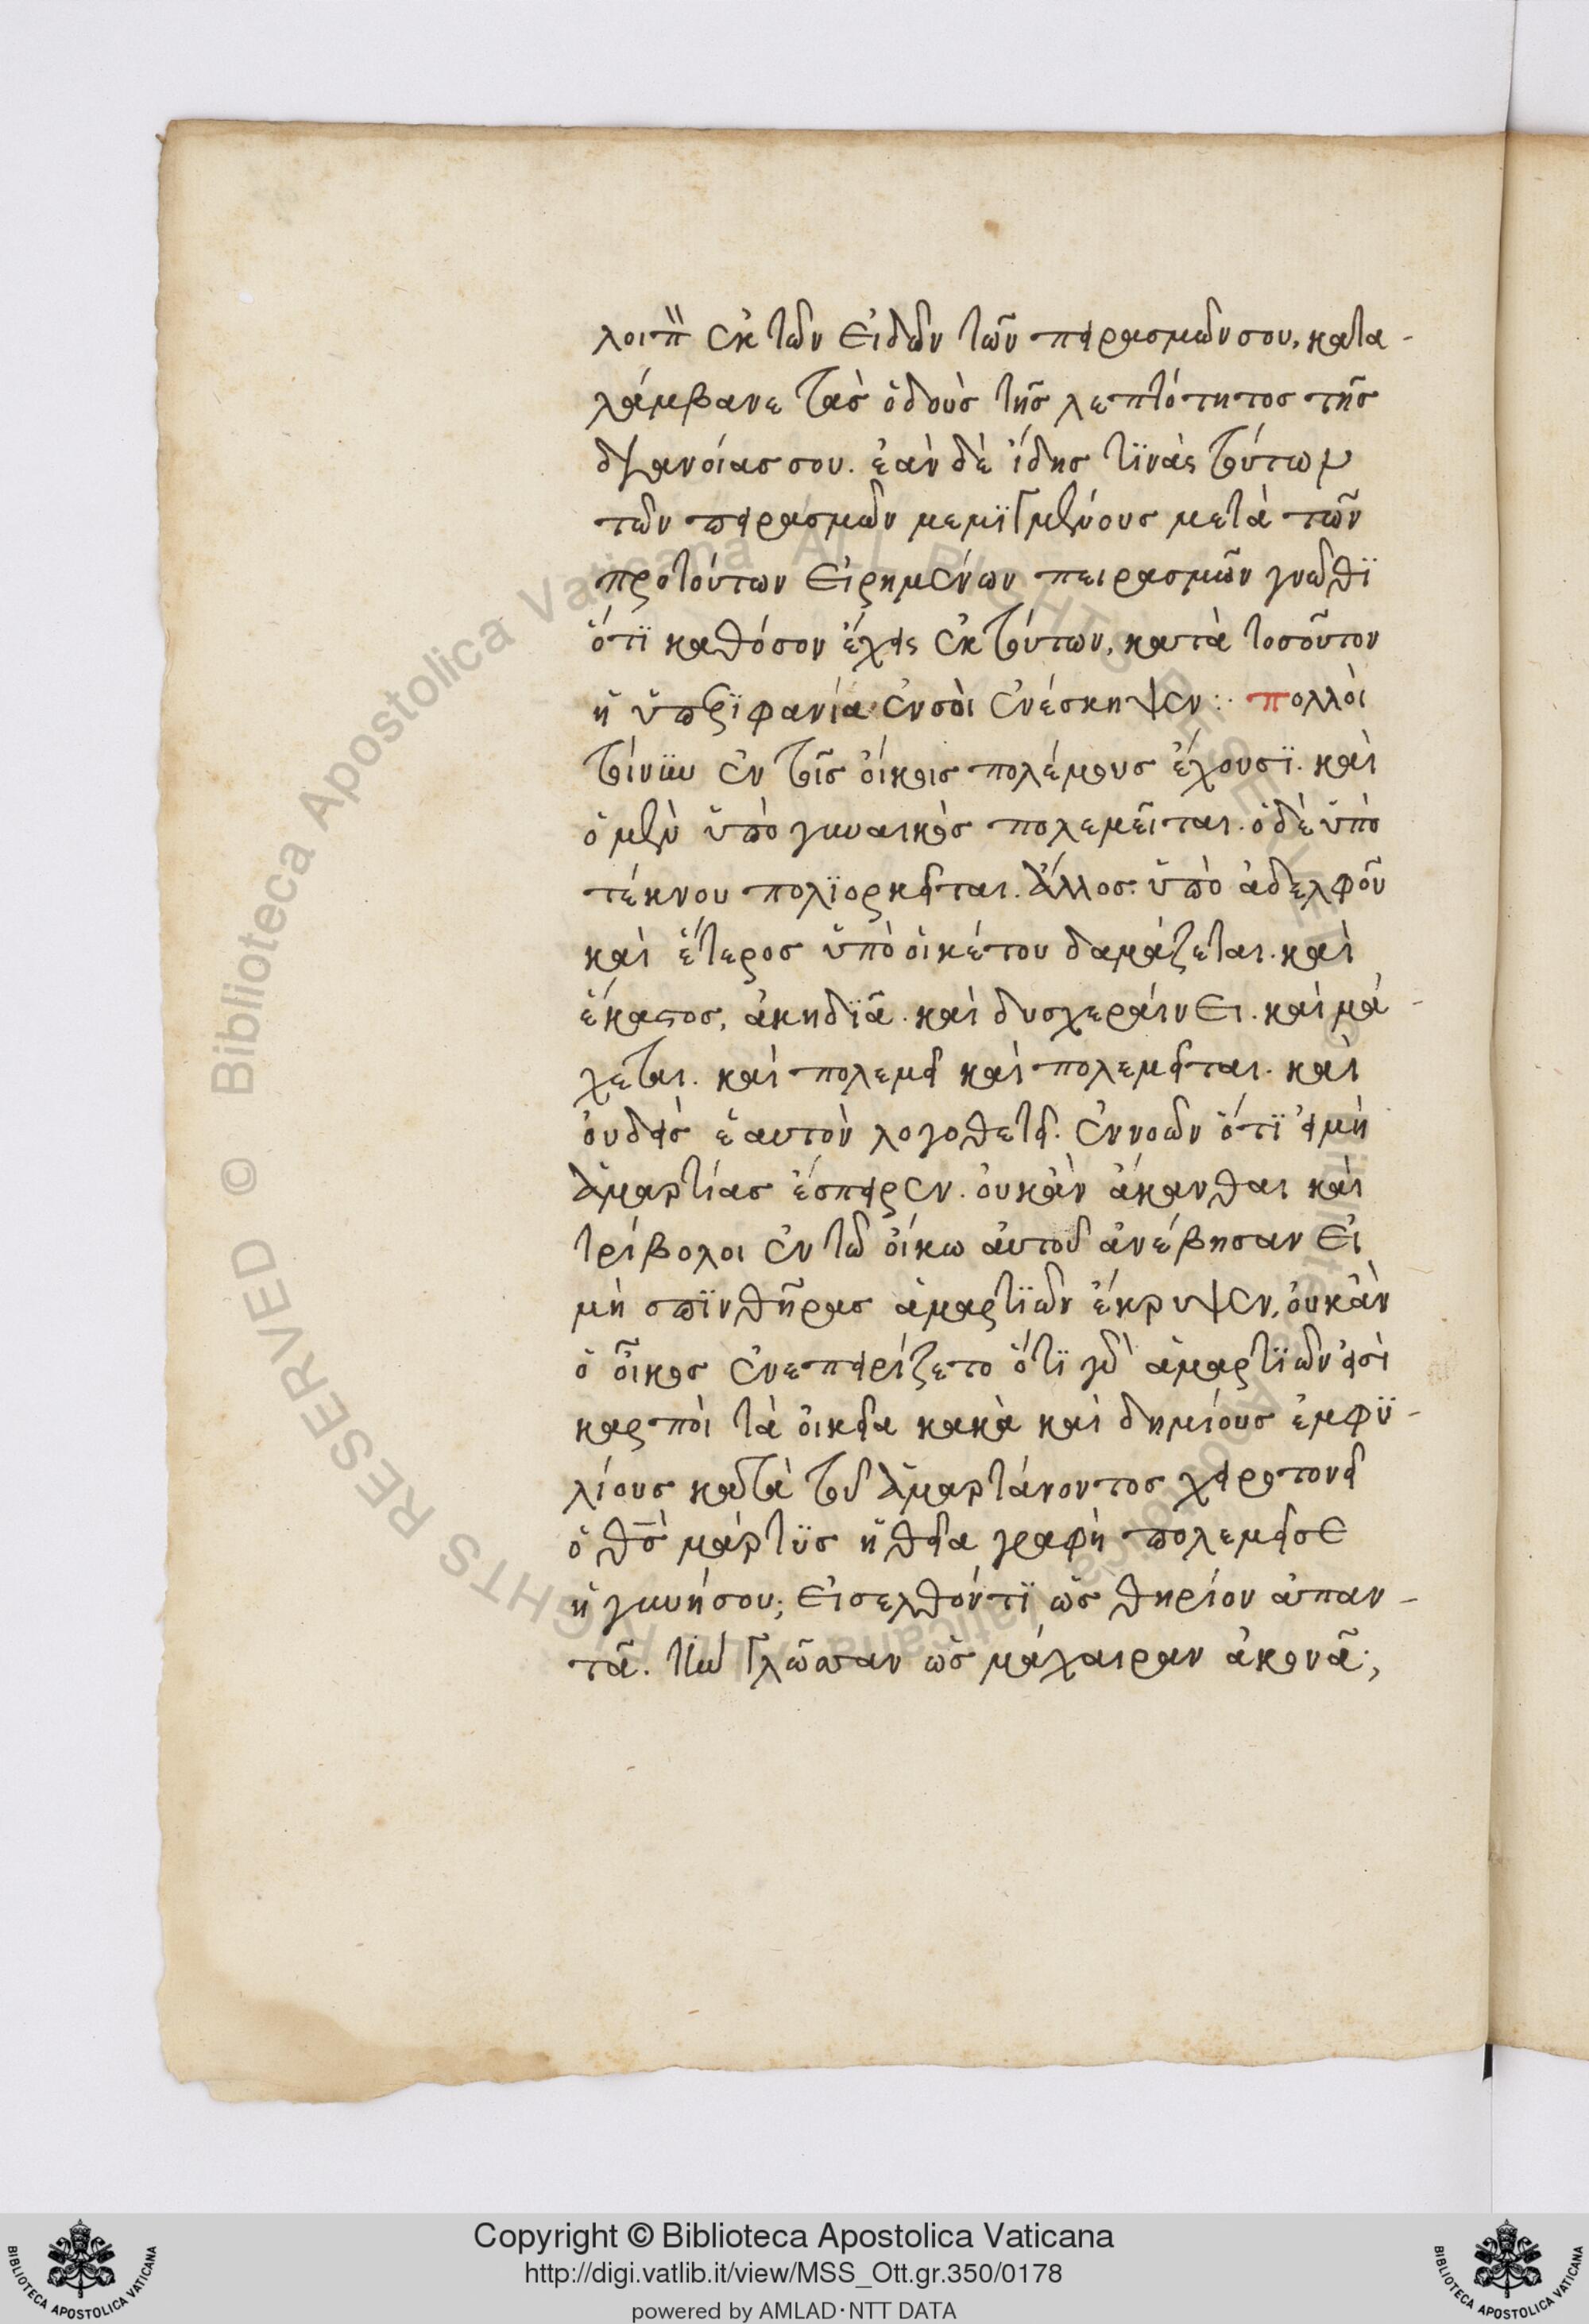 λοιπὸν ἐκ τῶν εἰδῶν τῶν πειρασμῶν σου, κατα-
λάμβανε τὰσ ὁδοὺσ τῆσ λεπτότητοσ τῆσ
διανοίασ σου. ἐὰν δὲ ἴδησ τϊνὰς τούτων
τῶν πειρασμῶν μεμϊγμένουσ μετὰ τῶν
προτούτων εἰρημένων πειρασμῶν γνῶθϊ
ὅτϊ καθόσον ἔχεις ἐκ τούτων, κατὰ τοσοῦτον
ἡ ὑπερϊφανία ἐνσὸι ἐνέσκηψεν:· πολλὸι
τοίνϋν ἐν τοῖσ ὀίκοισ πολέμουσ ἔχουσϊ. καὶ
ὁ μὲν ὑπὸ γυναικὸσ πολεμεῖται. ὁδὲ ὑπὸ
τέκνου πολϊορκεῖται. ἄλλοσ. ὑπὸ ἀδελφοῦ
καὶ ἕτεροσ ὑπὸ ὀικέτου δαμάζεται. καὶ
ἕκαστοσ, ἀκηδϊᾶ. καὶ δυσχεράινει. καὶ μά-
χεται. καὶ πολεμεῖ καὶ πολεμεῖται. καὶ
ὀυδεὶσ ἑαυτὸν λογοθετεῖ. ἐννοῶν ὅτϊ εἰμὴ
ἁμαρτίασ ἔσπειρεν. ὀυκὰν ἄκανθαι καὶ
τρίβολοι ἐν τῶ ὀίκω ἀυτοῦ ἀνέβησαν εἰ
μὴ σπϊνθῆρασ ἁμαρτϊῶν ἔκρυψεν, ὀυκὰν
ὁ ὀῖκοσ ἐνεπειρίζετο ὅτϊ γοῦν ἁμαρτϊῶν εἰσὶ
καρπὸι τὰ ὀικεῖα κακὰ καὶ δημίουσ ἐμφϋ-
λίουσ κατὰ τοῦ ἁμαρτάνοντοσ χειροτονεῖ
ὁ θσ̄ μάρτϋσ ἡ θεία γραφὴ πολεμεῖσε
ἡ γυνήσου; εἰσελθόντϊ ὡσ θηρίον ἀπαν-
τᾶ. τὴν γλῶσσαν ὡσ μάχαιραν ἀκονᾶ;
Copyright © Biblioteca Apostolica Vaticana
http://digi.vatlib.it/view/MSS_Ott.gr.350/0178
powered by AMLAD·NTT DATA